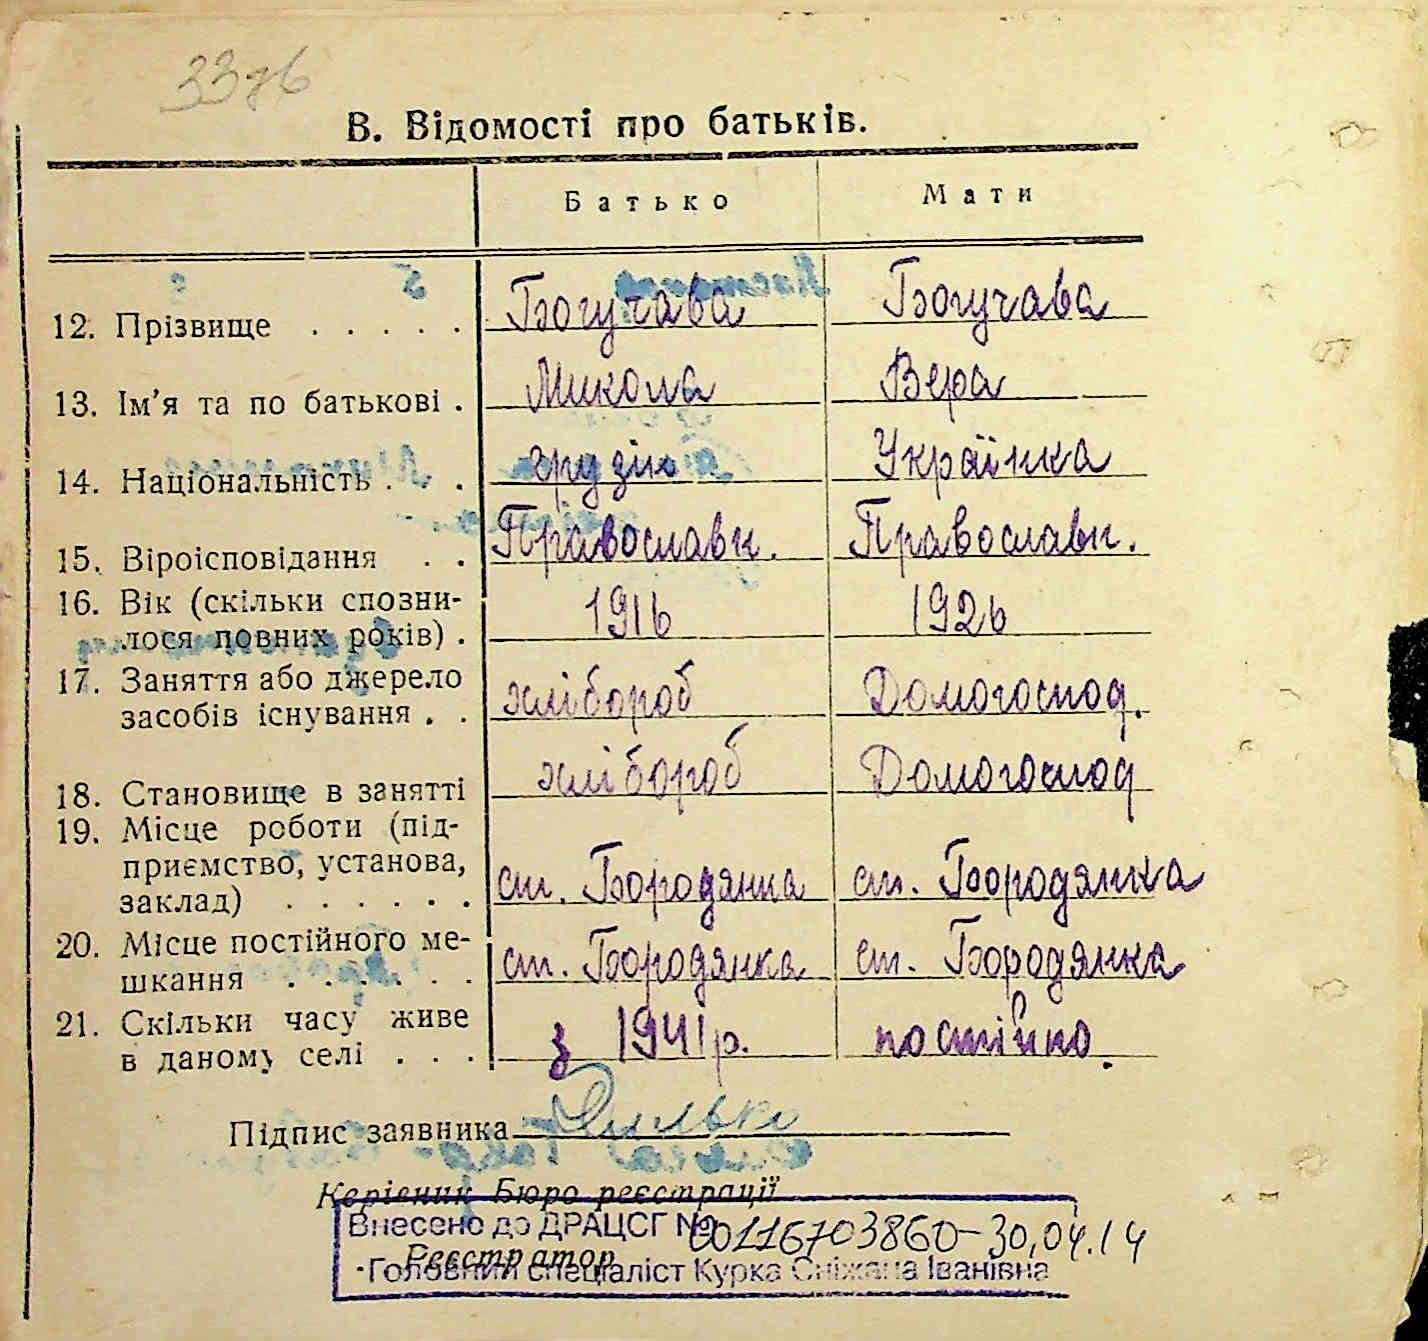 В. Відомості про батьків.
Батько Мати
12. Прізвище . . . . . Богучава Богучава
13. Ім’я та по батькові . Микола Вера
14. Національність . . . грузін Українка
15. Віроісповідання . . Православн. Православн.
16. Вік (скільки спозни-
лося повних років) . 1916 1926
17. Заняття або джерело
засобів існування . . хлібороб Домогоспод.
18. Становище в занятті хлібороб Домогоспод
19. Місце роботи (під-
приємство, установа,
заклад) . . . . . . ст. Бородянка ст. Бородянка
20. Місце постійного ме-
шкання . . . . . . ст. Бородянка ст. Бородянка
21. Скільки часу живе
в даному селі . . . з 1941 р. постійно.
Підпис заявника
Керівник Бюро реєстрації
Внесено до ДРАЦСГ № 00116703860-30.04.14
Реєстратор
Головний спеціаліст Курка Сніжана Іванівна